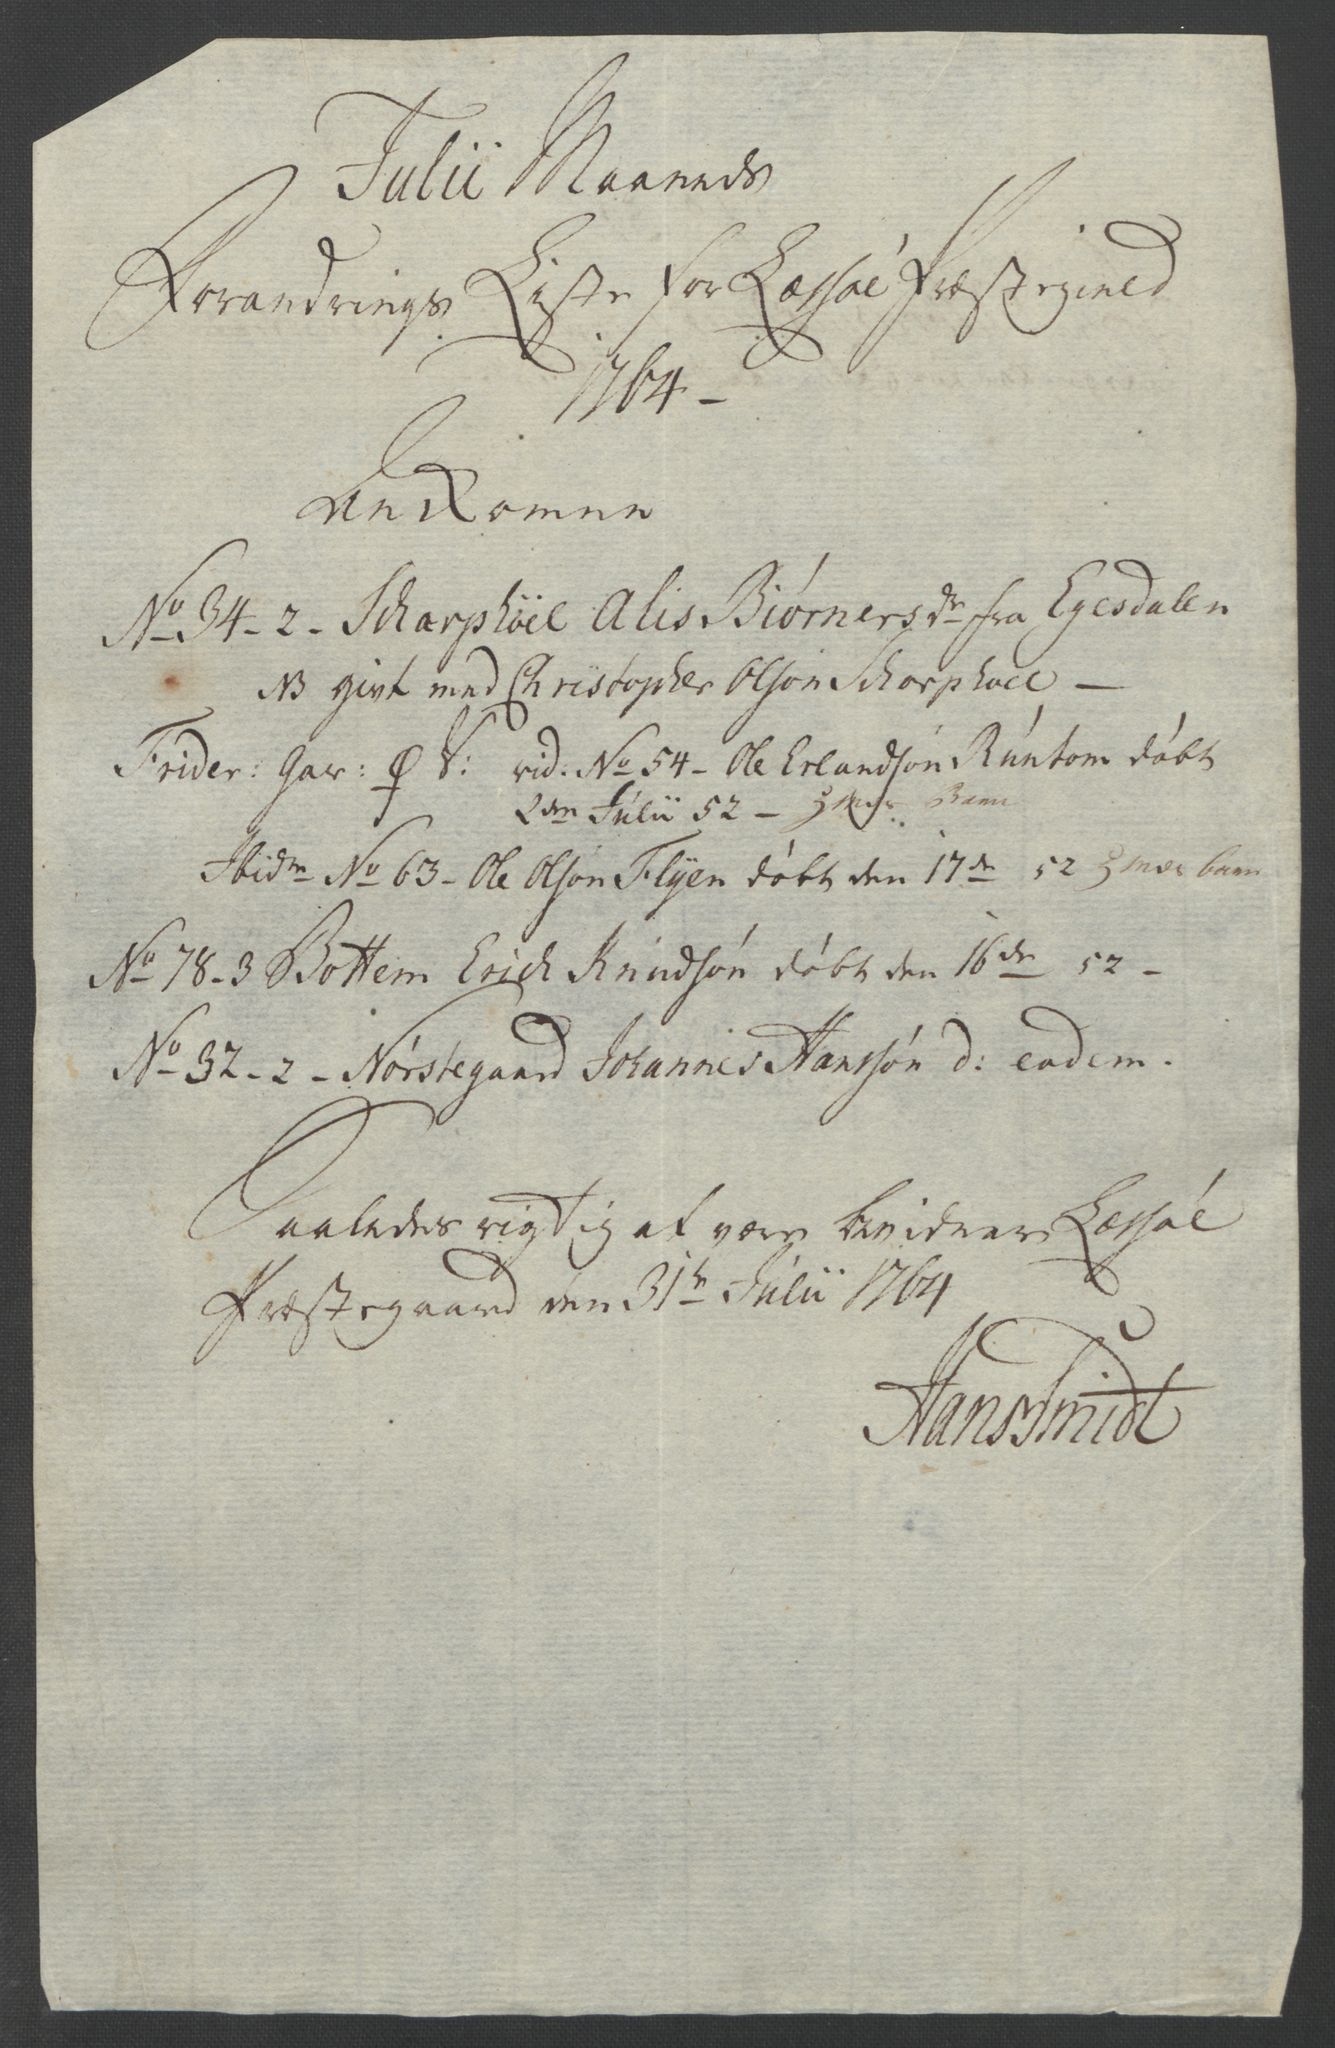 Julii Maaneds
Forandrings Liste for Læssøe Præstegield
1764 –
Ankomne
No 34 - 2 - Skarphöel Alis Biørnersdr fra Egesdalen
NB givt med Christopher Olsøn Skarphoel –
Frider: Gar: vid. No 54 - Ole Erlandsøn Rúntom døbt
2den Júlii 52 –
Ibidm No 63 - Ole Olsøn Flÿen døbt den 17de 52
No 78 - 3 Bottem Erich Knúdsøn døbt den 16de 52 –
No 32 - 2 - Nørstegaard Johannes Hanssøn d: eadem.
Saaledes rigtig at være bevidner Læssøe
Præstegaard den 31te Júlii 1764
Hans Smidt